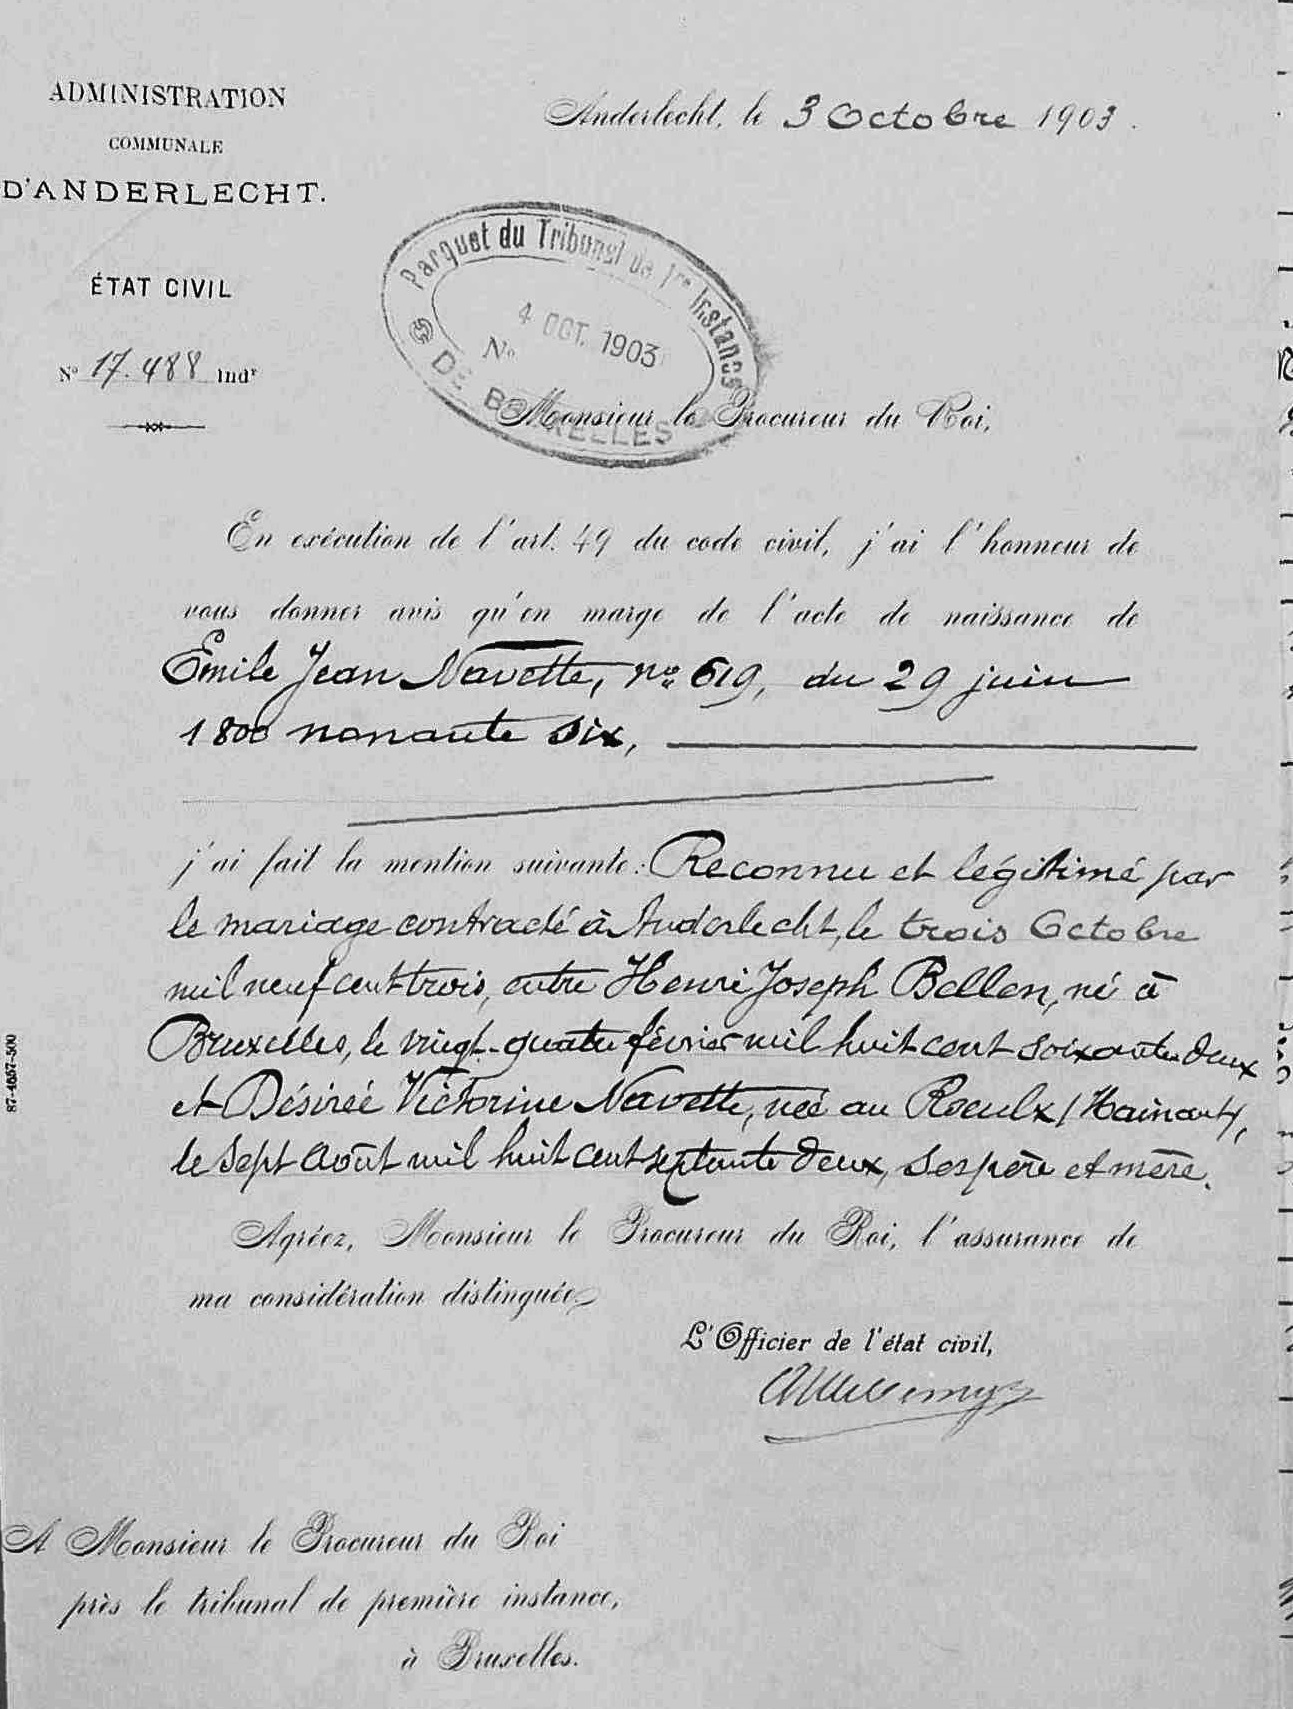 ADMINISTRATION
COMMUNALE
D'ANDERLECHT.
Anderlecht, le 3 Octobre 1903.
ÉTAT CIVIL
N° 17.488 Indr
Parquet du Tribunal de 1re Instance
4 OCT. 1903
No
DE BRUXELLES
Monsieur le Procureur du Roi,
En exécution de l'art. 49 du code civil, j'ai l'honneur de
vous donner avis qu'en marge de l'acte de naissance de
Emile Jean Navette, no 619, du 29 juin
1800 nonante six,
j'ai fait la mention suivante : Reconnu et légitimé par
le mariage contracté à Anderlecht, le trois Octobre
mil neuf cent trois, entre Henri Joseph Bellen, né à
Bruxelles, le vingt-quatre février mil huit cent soixante deux
et Désirée Victorine Navette, née au Roeulx (Hainaut),
le sept Août mil huit cent septante deux, ses père et mère.
Agréez, Monsieur le Procureur du Roi, l'assurance de
ma considération distinguée.
L'Officier de l'état civil,
A Monsieur le Procureur du Roi
près le tribunal de première instance,
à Bruxelles.
87-4657-500